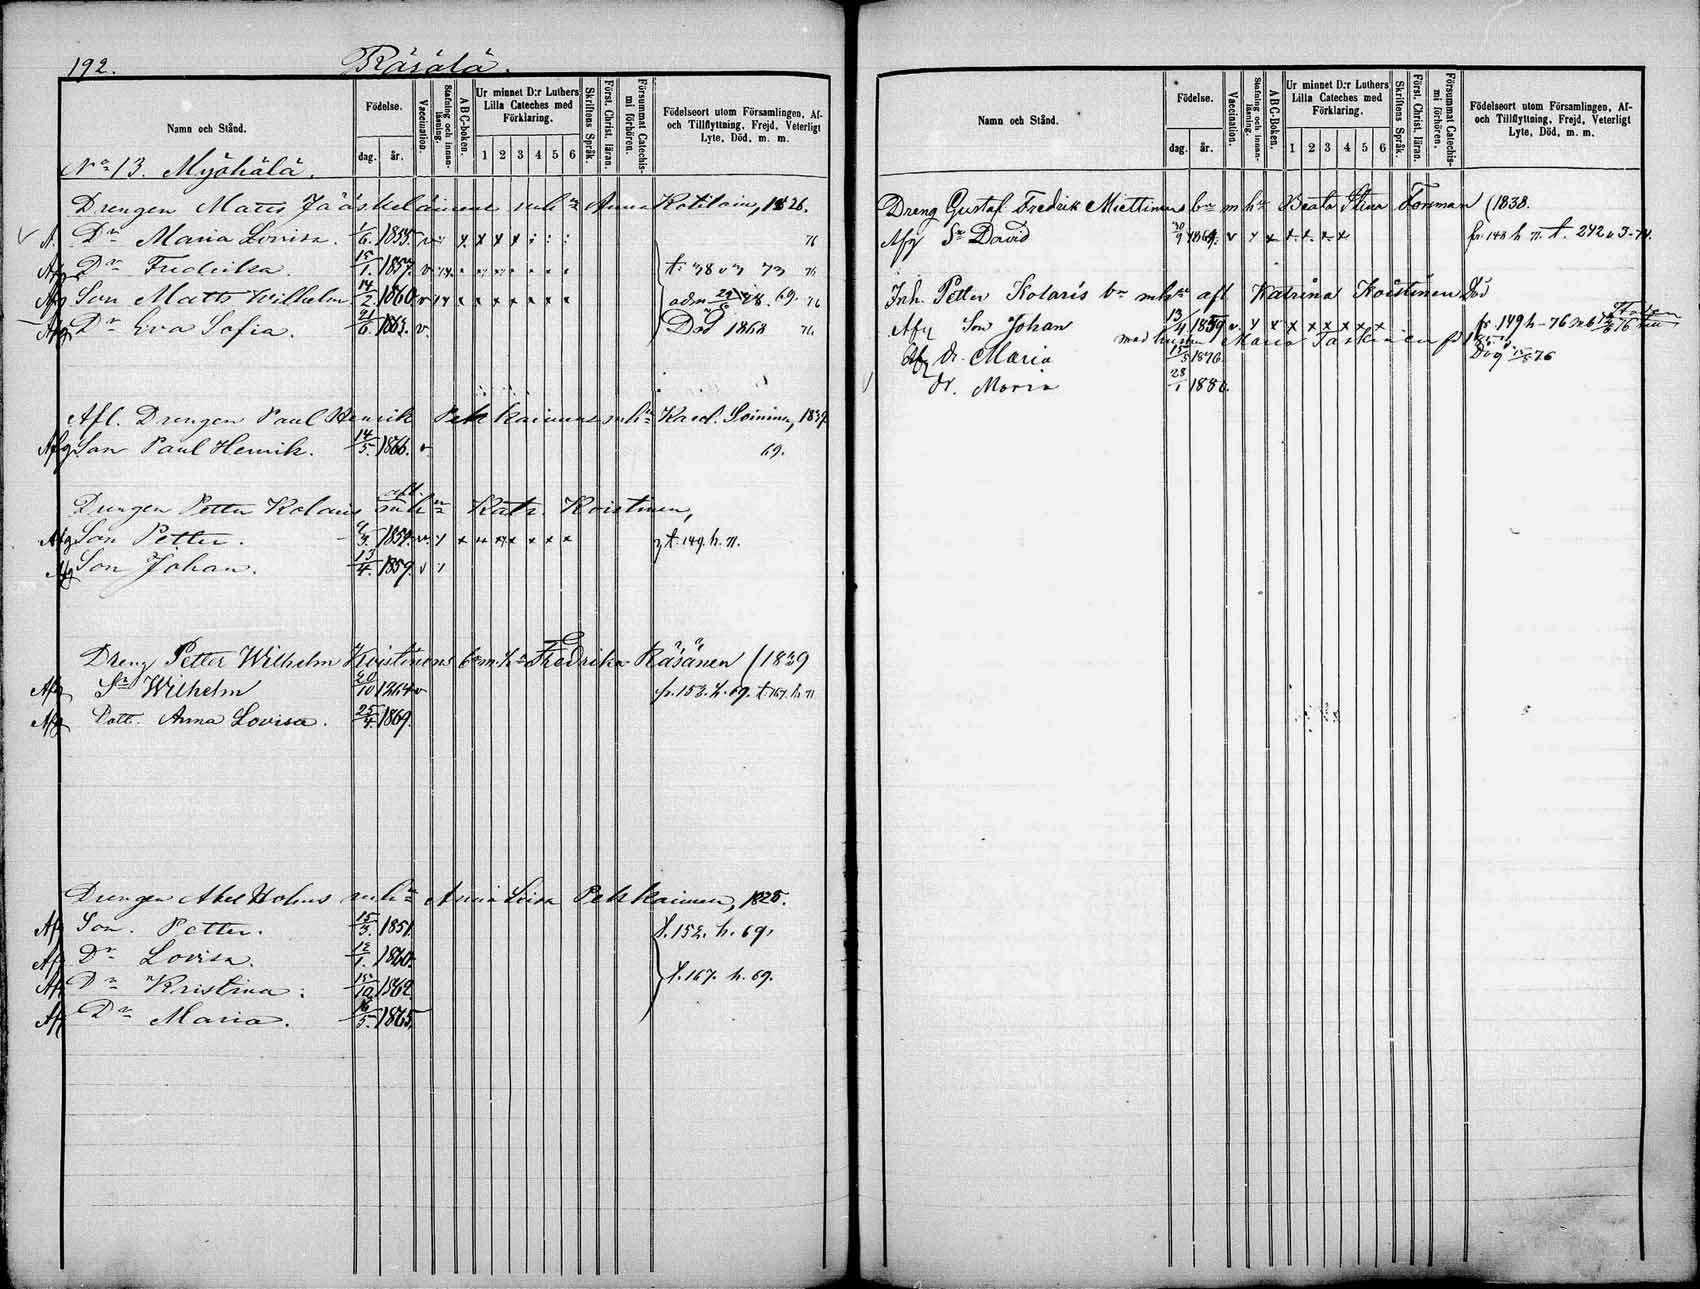 192. Räsälä.
Namn och Stånd.
Födelse.
dag. år.
Vaccination.
Stafning och innanläsning.
ABC-boken.
Ur minnet D:r Luthers Lilla Cateches med Förklaring.
1 2 3 4 5 6
Skriftens Språk.
Först. Christ. läran.
Försummat Catechismi förhören.
Födelseort utom Församlingen, Af- och Tillflyttning, Frejd, Veterligt Lyte, Död, m. m.
No 13. Myöhälä.
Drengen Matts Jääskeläinens m h:u Anna Kotilain, 1826.
D:r Maria Lovisa. 1855. v 76
Afg D:r Fredrika. 15/1. 1857. v t. 38 v 3 73 76
Afg Son Matts Wilhelm 14/2 1860 v 69. 76
Afg D:r Eva Sofia. 21/6. 1863. v. Död 1868 76
Afl. Drengen Paul Henrik Pekkainens m h:u Karol. Soininen, 1839.
Afg Son Paul Henrik. 14/5. 1866. v 69.
Drengen Petter Kolaris afl. m h:u Katr. Koistinen,
Afg Son Petter. 9/3. 1854. v. x x x x x x x t. 149. h. 71.
Afg Son Johan. 13/4. 1859. v
Dreng Petter Wilhelm Koistinens b:n m. h:u Fredrika Räsänen (1839
Afg S:n Wilhelm 20/10 1864 v fr. 152. h. 69. t. 167. h. 71
Afg Dott. Anna Lovisa. 25/4. 1869.
Drengen Abel Holms m h:u Anna Lisa Pekkainen, 1825.
Afg Son. Petter. 15/3. 1851. t. 152. h. 69.
Afg D:r Lovisa. 12/1. 1860.
Afg D:r Kristina. 15/12 1862. t. 167. h. 69.
Afg D:r Maria. 16/5. 1865.
Namn och Stånd.
Födelse.
dag. år.
Vaccination.
Stafning och innanläsning.
ABC-Boken.
Ur minnet D:r Luthers Lilla Cateches med Förklaring.
1 2 3 4 5 6
Skriftens Språk.
Först. Christ. läran.
Försummat Catechismi förhören.
Födelseort utom Församlingen, Af- och Tillflyttning, Frejd, Veterligt Lyte, Död, m. m.
Dreng Gustaf Fredrik Miettinens b:n m h:u Beata Stina Forsman (1838.
Afg S:n David 30/9 1864. v x x x x x x fr. 148 h 71. t. 242 v 3-74.
Inh. Petter Kolaris b:n m h:u afl Katrina Koistinen Död
Afg Son Johan 13/4 1859 v. x x x x x x x x fr. 149 h - 76
med hustru Maria Taskinen
Afg dr. Maria 15/5 1876. Dog 15/8 76
dr. Maria 28/1 1880.